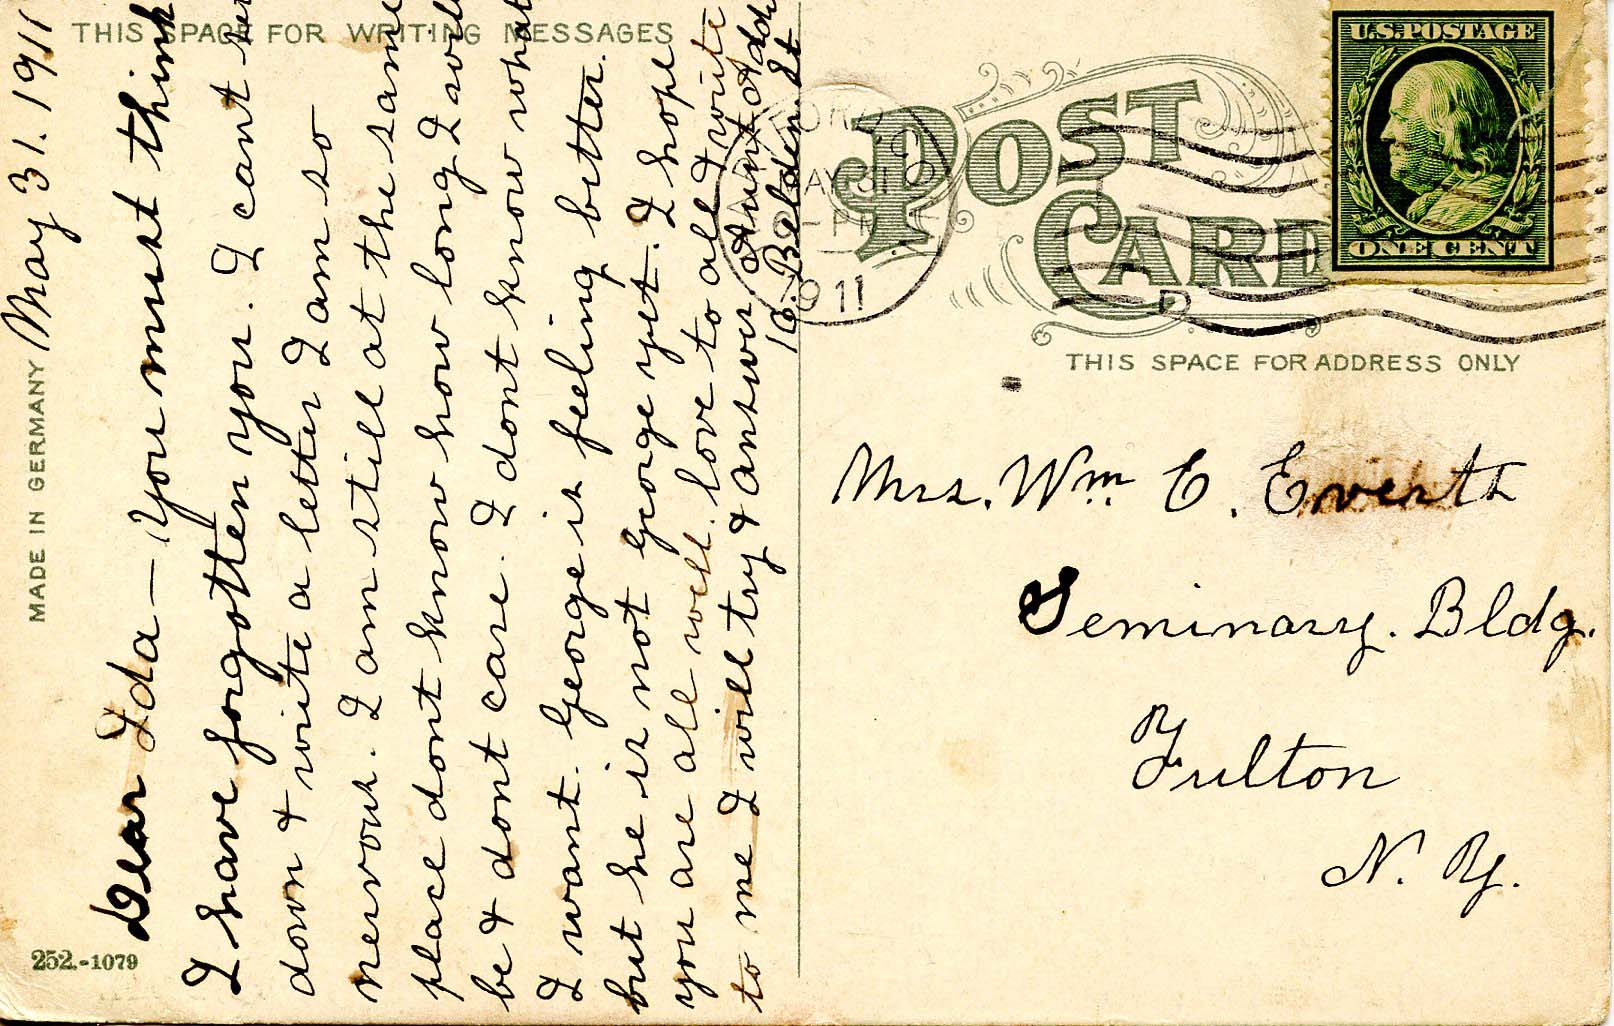 THIS SPACE FOR WRITING MESSAGES
MADE IN GERMANY
252.-1079
May 31. 1911
Dear Ida — You must think
I have forgotten you. I cant
down & write a letter I am so
nervous. I am still at the same
place dont know how long I will
be & dont care. I dont know what
I want. George is feeling better.
but he is not George yet. I hope
you are all well. love to all & write
to me I will try & answer Aunt Addie
16. Belden St
POST
CARD
MAY 31
1911
U.S. POSTAGE
ONE CENT
THIS SPACE FOR ADDRESS ONLY
Mrs. Wm. E. Everts
Seminary. Bldg.
Fulton
N. Y.